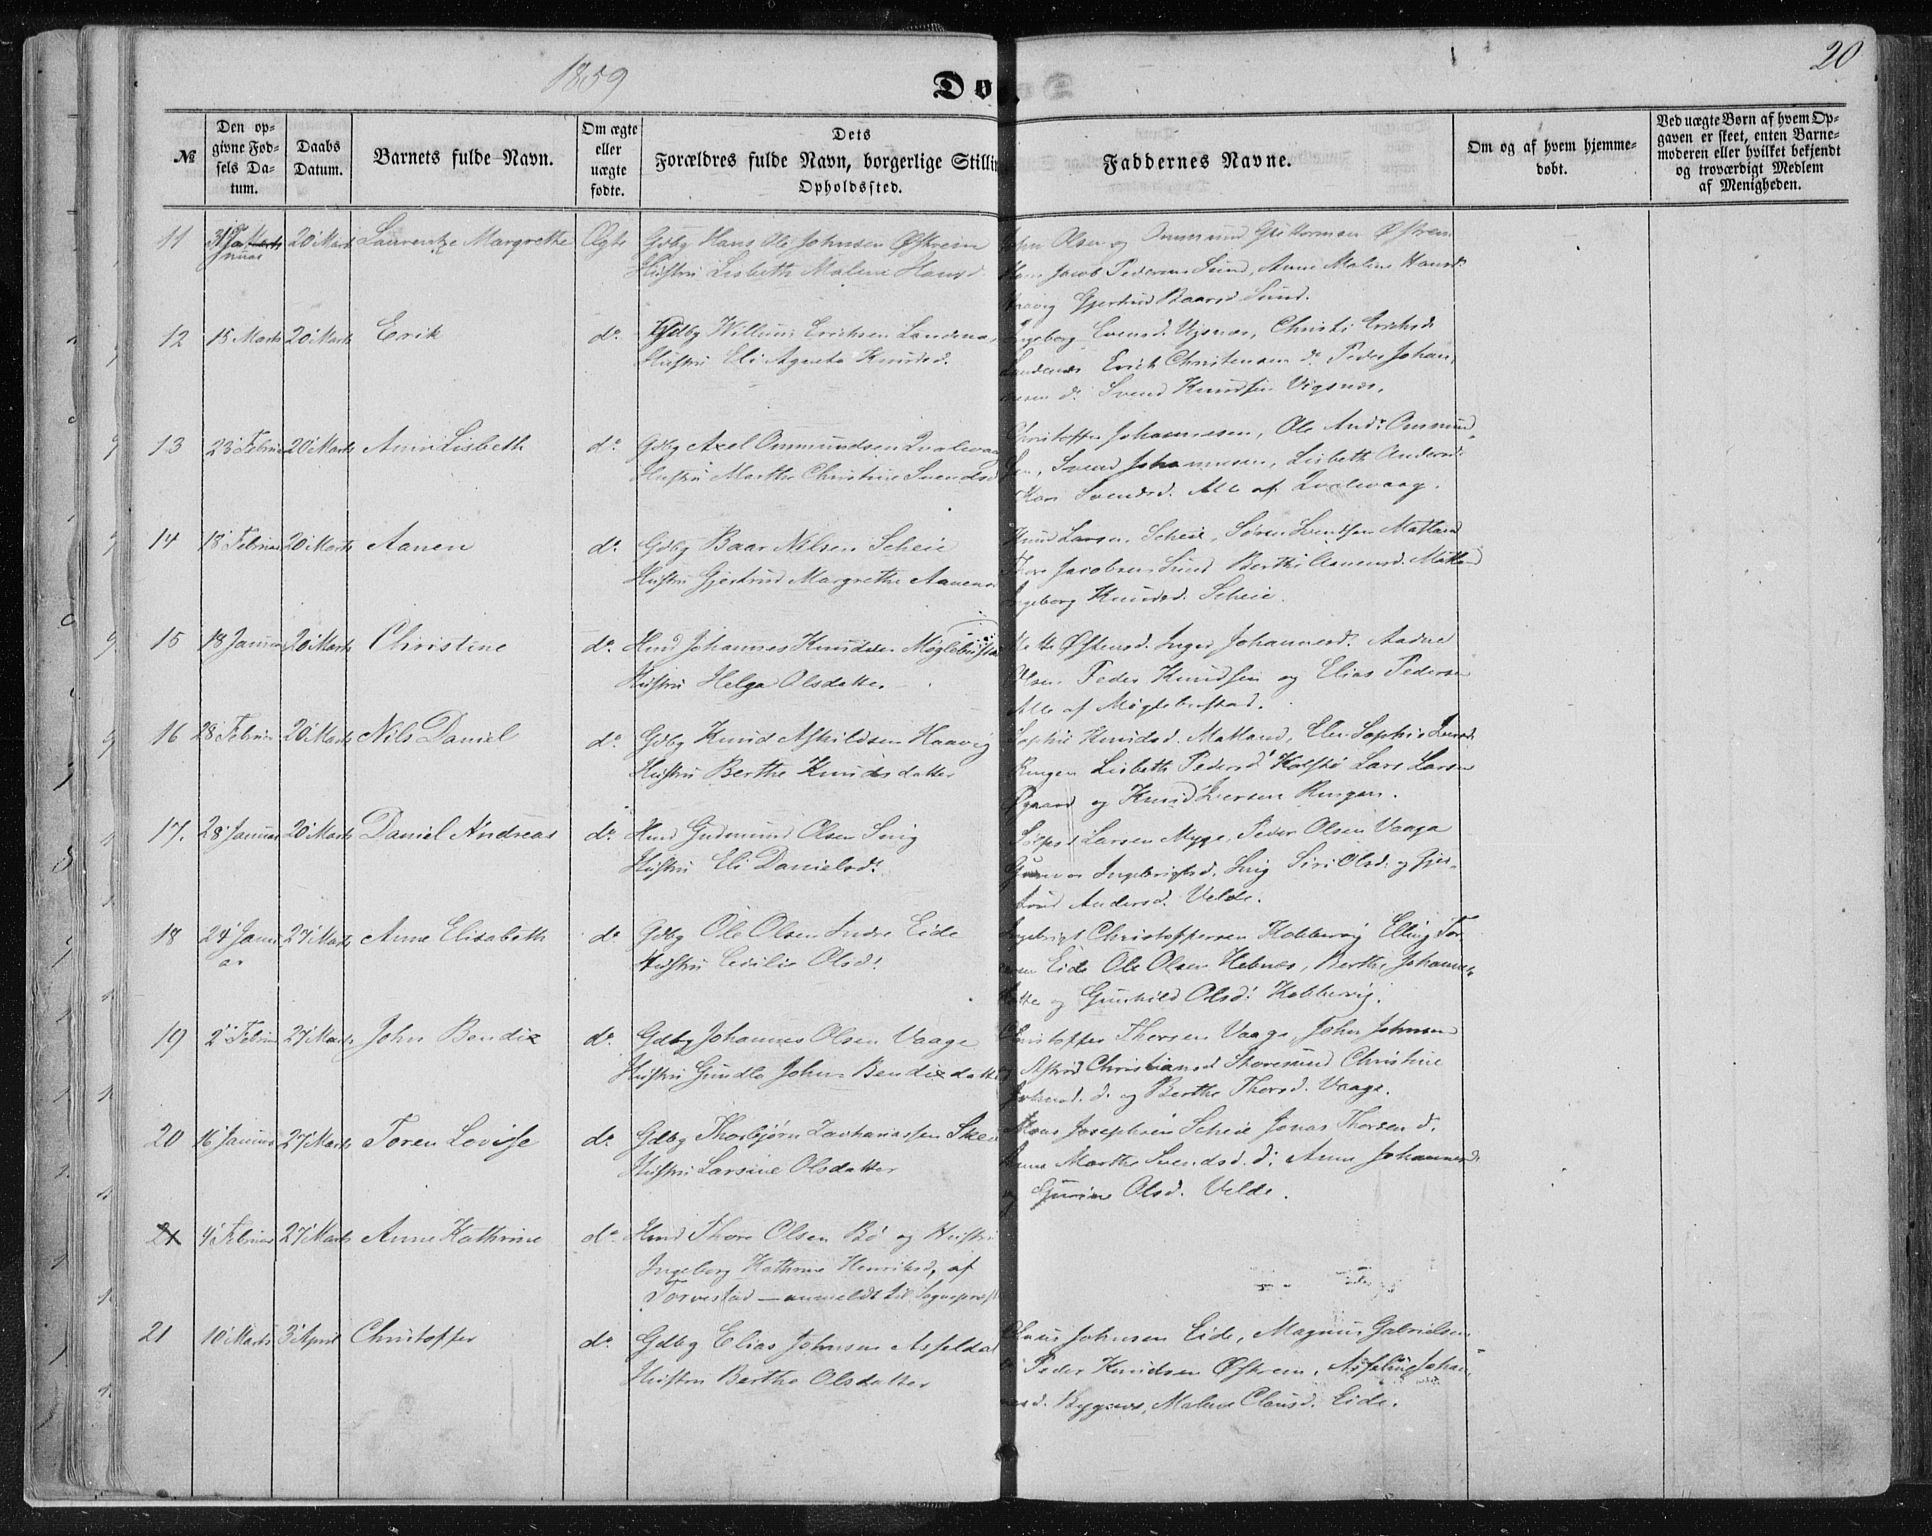 1859
Do
20
№
Den op-
givne Fød-
sels Da-
tum.
Daabs
Datum.
Barnets fulde Navn.
Om ægte
eller
uægte
fødte.
Dets
Forældres fulde Navn, borgerlige Stillin
Opholdssted.
Faddernes Navne.
Om og af hvem hjemme-
døbt.
Ved uægte Børn af hvem Op-
gaven er skeet, enten Barne-
moderen eller hvilket bekjendt
og troværdigt Medlem
af Menigheden.
11 31 Januar 20 Marts Laurentze Margrethe Ægte Gdbg Hans Ole Johnsen Østrem
Hustru Lisbeth Malene Hansd.
John Olsen og Ommund Guttormsen Østrem
Jacob Pedersen Sund, Anne Malene Hansd.
Haavig Gjertrud Baarsd Sund.
12 15 Marts 20 Marts Erik do Gdbg Willum Erichsen Landenæs
Hustru Eli Agneta Knudsd.
Ingeborg Svensd. Vigsnæs, Christi Erichsd.
Landenæs Erich Christensen do Peder Johan-
nesen do Svend Knudsen Vigsnæs.
13 23 Februar 20 Marts Anne Lisbeth do Gdbg Axel Ommundsen Qvalevaag
Hustru Marthe Christine Svendsd
Christoffer Johannesen, Ole And. Ommund-
sen, Svend Johannesen, Lisbeth Andersd.
Kari Svendsd. Alle af Qvalevaag.
14 18 Februar 20 Marts Aanen do Gdbg Baar Nilsen Scheie
Hustru Gjertrud Margrethe Aanens
Knud Larsen Scheie, Søren Matland
Jacobsen Sund Berthe Aanensd. Matland
Ingeborg Knudsd. Scheie.
15 18 Januar 20 Marts Christine do Hmd Johannes Knudsen Møglebustad
Hustru Helga Olsdatter
Mette Østensd. Inger Johannesd. Aadne
Olsen Peder Knudsen og Elias Pedersen
Alle af Møglebustad.
16 28 Februar 20 Marts Nils Daniel do Gdbg Knud Askildsen Haavig
Hustru Berthe Knudsdatter
Sophie Knudsd. Matland, Elen Sophie
Ringen Lisbeth Pedersd Kolstø Lars Larsen
Øgaard og Knud Iversen Ringen.
17. 28 Januar 20 Marts Daniel Andreas do Hmd Gudmund Olsen Snig
Hustru Eli Danielsd.
Larsen Myge, Peder Olsen Vaaga
Gunvor Ingebrigtsd. Snig Siri Olsd. og Gjer-
trud Andersd. Velde.
18 24 Janu
ar 27 Marts Anne Elisabeth do Gdbg Ole Olsen Indre Eide
Hustru Cecilie Olsd.
Ingebrigt Christoffersen Kobbervig Elling Tor
Eide Ole Olsen Hebnes, Berthe Johannes
og Gunhild Olsd. Kobbervig.
19 2 Februar 27 Marts John Bendix do Gdbg Johannes Olsen Vaage
Hustru Gundla Johns Bendixdatter
Christoffer Thorsen Vaage, John Johnsen
Astrid Christiansd Storesund Christine
Johnsd. do og Berthe Thorsd. Vaage.
20 16 Januar 27 Marts Toren Lovise do Gdbg Thorbjørn Zachariassen Skeie
Hustru Larsine Olsdatter
Mons Josephsen Scheie Jonas Thorsen do
Anne Marthe Svendsd. do Anne Johannesd.
og Gurine Olsd. Velde.
21 4 Februar 27 Marts Anne Kathrine do Hmd Thore Olsen Bø og Hustru
Ingeborg Kathrine Henriksd, af
Torvestad – anmeldt til Sognepræst
21 10 Marts 3 April Christoffer do Gdbg Elias Johnsen Asseldal
Hustru Berthe Olsdatter
Claus Johnsen Eide, Magnus Gabrielsen
Peder Knudsen Østrem, Johan-
nesd. Bygnes, Malene Clausd. Eide.